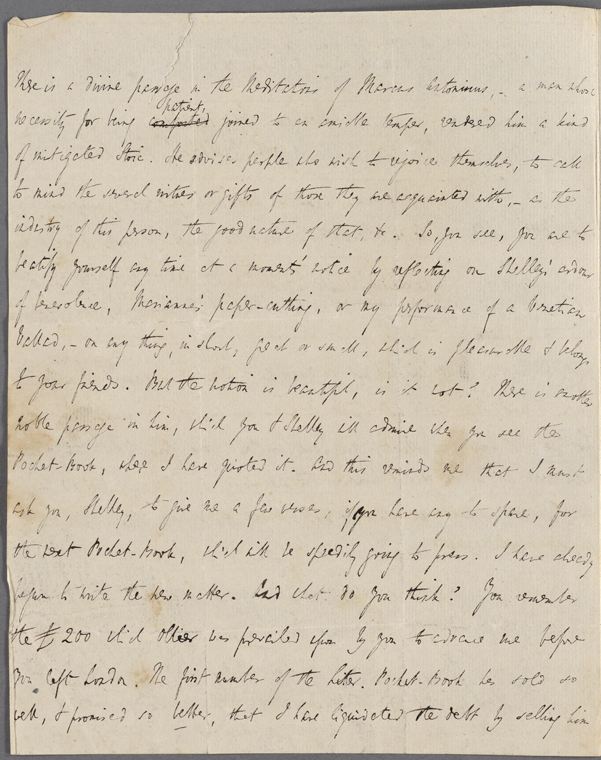 There is a divine passage in the Meditations of Marcus Antoninus, - a man whose
patient,
necessity for being comforted joined to an amiable temper, rendered him a kind
of mitigated Stoic. He advises people who wish to rejoice themselves, to call
to mind the several virtues or gifts of those they are acquainted with, - as the
industry of this person, the good nature of that, &c. So, you see, you are to
beatify yourself any time at a moment's notice by reflecting on Shelley's ardour
of benevolence, Marianne's paper-cutting, or my performance of a Venetian
ballad, - on any thing, in short, great or small, which is pleasurable & belongs
to your friends. But the notion is beautiful, is it not? There is another
noble passage in him, which you & Shelley will admire when you see the
Pocket-Book, where I have quoted it. And this reminds me that I must
ask you, Shelley, to give me a few verses, if you have any to spare, for
the next Pocket-Book, which will be speedily going to press. I have already
begun to write the new matter. And what do you think? You remember
the £200 which Ollier was prevailed upon by you to advance me before
you left London. The first number of the Liter. Pocket-Book has sold so
well, & promised so better, that I have liquidated the debt by selling him